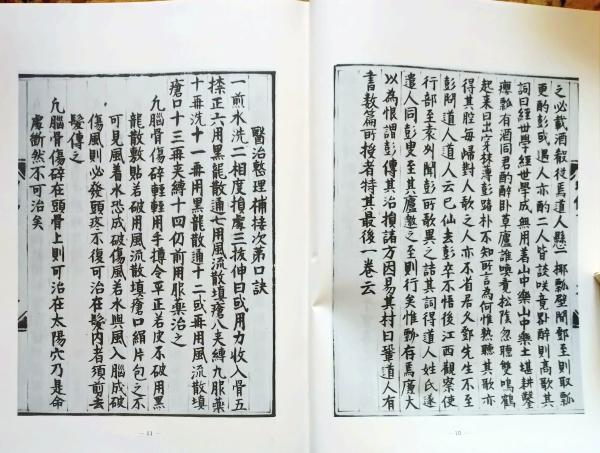 之必載酒殽從焉道人懸一椰瓢壁間鄧至則取瓢
更酌彭或遇人亦酌二人皆談咲竟日醉則高歌其
詞曰經世學經世學成無用著山中樂山中樂土堪耕鑿
癭瓢有酒同君酌醉卧草廬誰喚覺松陰忽聽雙鳴鶴
起來日出穴林薄彭踏朴不知所言為何惟熟聽其歌亦
得其腔每歸對人歌之人亦不省居久鄧先生不至
彭問道人道人云已仙去彭卒不悟後江西觀察使
行部至袁州聞彭所歌異之詰其詞得道人姓氏遂
遣人同彭叟至其廬邀之至則行矣惟瓢存焉廉大
以為恨謂彭傳其治損諸方因易其村曰鞏道人有
書數篇所授者特其最後一卷云
— 10 —
醫治整理補接次第口訣
一煎水洗二相度損處三拔伸四或用力收入骨五
捺正六用黑龍散通七用風流散填瘡八夾縛九服藥
十再洗十一再用黑龍散通十二或再用風流散填
瘡口十三再夾縛十四仍前用服藥治之
凡腦骨傷碎輕輕用手撙令平正若皮不破用黑
龍散敷貼若破用風流散填瘡口絹片包之不
可見風着水恐成破傷風若水與風入腦成破
傷風則必發頭疼不復可治在髮内者須剪去
髮傅之
凡腦骨傷碎在頭骨上則可治在太陽穴乃是命
處斷然不可治矣
— 11 —